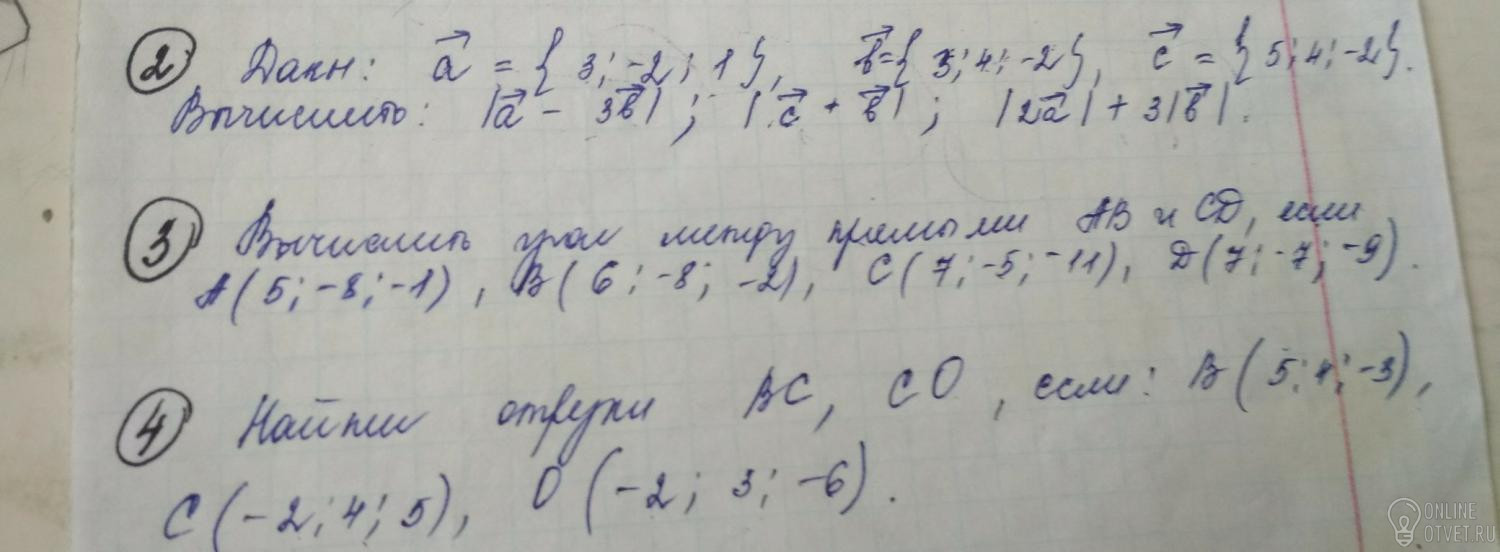 2 Даны: a = { 3; -2; 1 }, b = { 3; 4; -2 }, c = { 5; 4; -2 }.
Вычислить: |a - 3b| ; |c + b| ; |2a| + 3|b|.
3 Вычислить угол между прямыми AB и CD, если
A(5; -8; -1), B(6; -8; -2), C(7; -5; -11), D(7; -7; -9).
4 Найти отрезки BC, CO, если: B(5; 4; -3),
C(-2; 4; 5), O(-2; 3; -6).
ONLINE
OTVET.RU